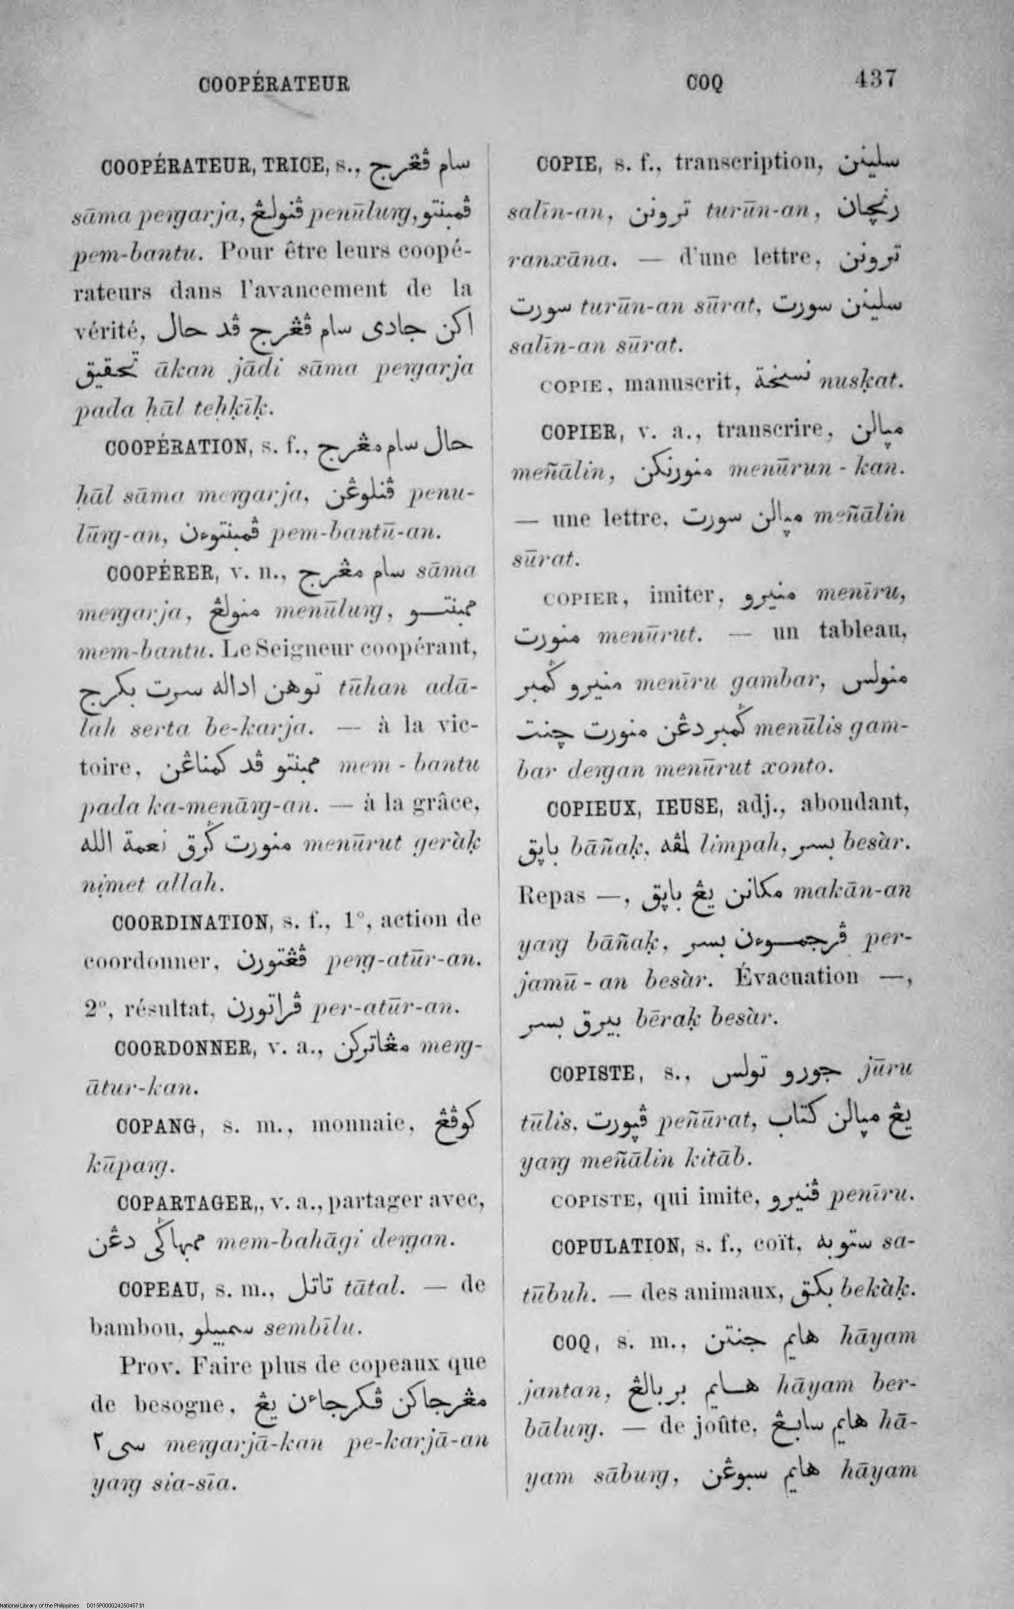 COOPÉRATEUR
COQ
437
COOPÉRATEUR, TRICE, s., سام ڤڠرج
sāma pergarja, ڤنولڠ penūlurg, ڤمبنتو
pem-bantu. Pour être leurs coopé-
rateurs dans l'avancement de la
vérité, اکن جادی سام ڤڠرج ڤد حال
تحقيق ākan jādi sāma pergarja
pada ḥāl teḥḳīḳ.
COOPÉRATION, s. f., حال سام مڠرج
ḥāl sāma mergarja, ڤنلوڠن penu-
lūrg-an, ڤمبنتوءن pem-bantū-an.
COOPÉRER, v. n., سام مڠرج sāma
mergarja, منولڠ menūlurg, ممبنتو
mem-bantu. Le Seigneur coopérant,
توهن اداله سرت بکرج tūhan adā-
lah serta be-karja. — à la vic-
toire, ممبنتو ڤد کمناڠن mem-bantu
pada ka-menārg-an. — à la grâce,
منورت ݢرق نعمة الله menūrut geràḳ
nimet allah.
COORDINATION, s. f., 1°, action de
coordonner, ڤڠتورن perg-atūr-an.
2°, résultat, ڤراتورن per-atūr-an.
COORDONNER, v. a., مڠاترکن merg-
ātur-kan.
COPANG, s. m., monnaie, کوڤڠ
kūparg.
COPARTAGER,, v. a., partager avec,
ممبهاݢی دڠن mem-bahāgi dergan.
COPEAU, s. m., تاتل tātal. — de
bambou, سمبيلو sembīlu.
Prov. Faire plus de copeaux que
de besogne, مڠرجاکن ڤکرجاءن يڠ
سی ٢ mergarjā-kan pe-karjā-an
yarg sia-sīa.
COPIE, s. f., transcription, سلينن
salīn-an, ترونن turūn-an, رنچان
ranxāna. — d'une lettre, ترونن
سورت turūn-an sūrat, سلينن سورت
salīn-an sūrat.
COPIE, manuscrit, نسخة nusḳat.
COPIER, v. a., transcrire, مڽالن
meñālin, منورنکن menūrun-kan.
— une lettre, مڽالن سورت meñālin
sūrat.
COPIER, imiter, منيرو menīru,
منورت menūrut. — un tableau,
منيرو ݢمبر menīru gambar, منولس
ݢمبر دڠن منورت چنت menūlis gam-
bar dergan menūrut xonto.
COPIEUX, IEUSE, adj., abondant,
باڽق bāñaḳ, لمڤه limpah, بسر besàr.
Repas —, مکانن يڠ باڽق makān-an
yarg bāñaḳ, ڤرجموءن بسر per-
jamū-an besàr. Évacuation —,
بيرق بسر bēraḳ besàr.
COPISTE, s., جورو تولس jūru
tūlis, ڤڽورت peñūrat, يڠ مڽالن کتاب
yarg meñālin kitāb.
COPISTE, qui imite, ڤنيرو penīru.
COPULATION, s. f., coït, ستوبه sa-
tūbuh. — des animaux, بکق bekàḳ.
COQ, s. m., هايم جنتن hāyam
jantan, هايم بربالڠ hāyam ber-
bālurg. — de joûte, هايم سابڠ hā-
yam sāburg, هايم سبوڠن hāyam
National Library of the Philippines